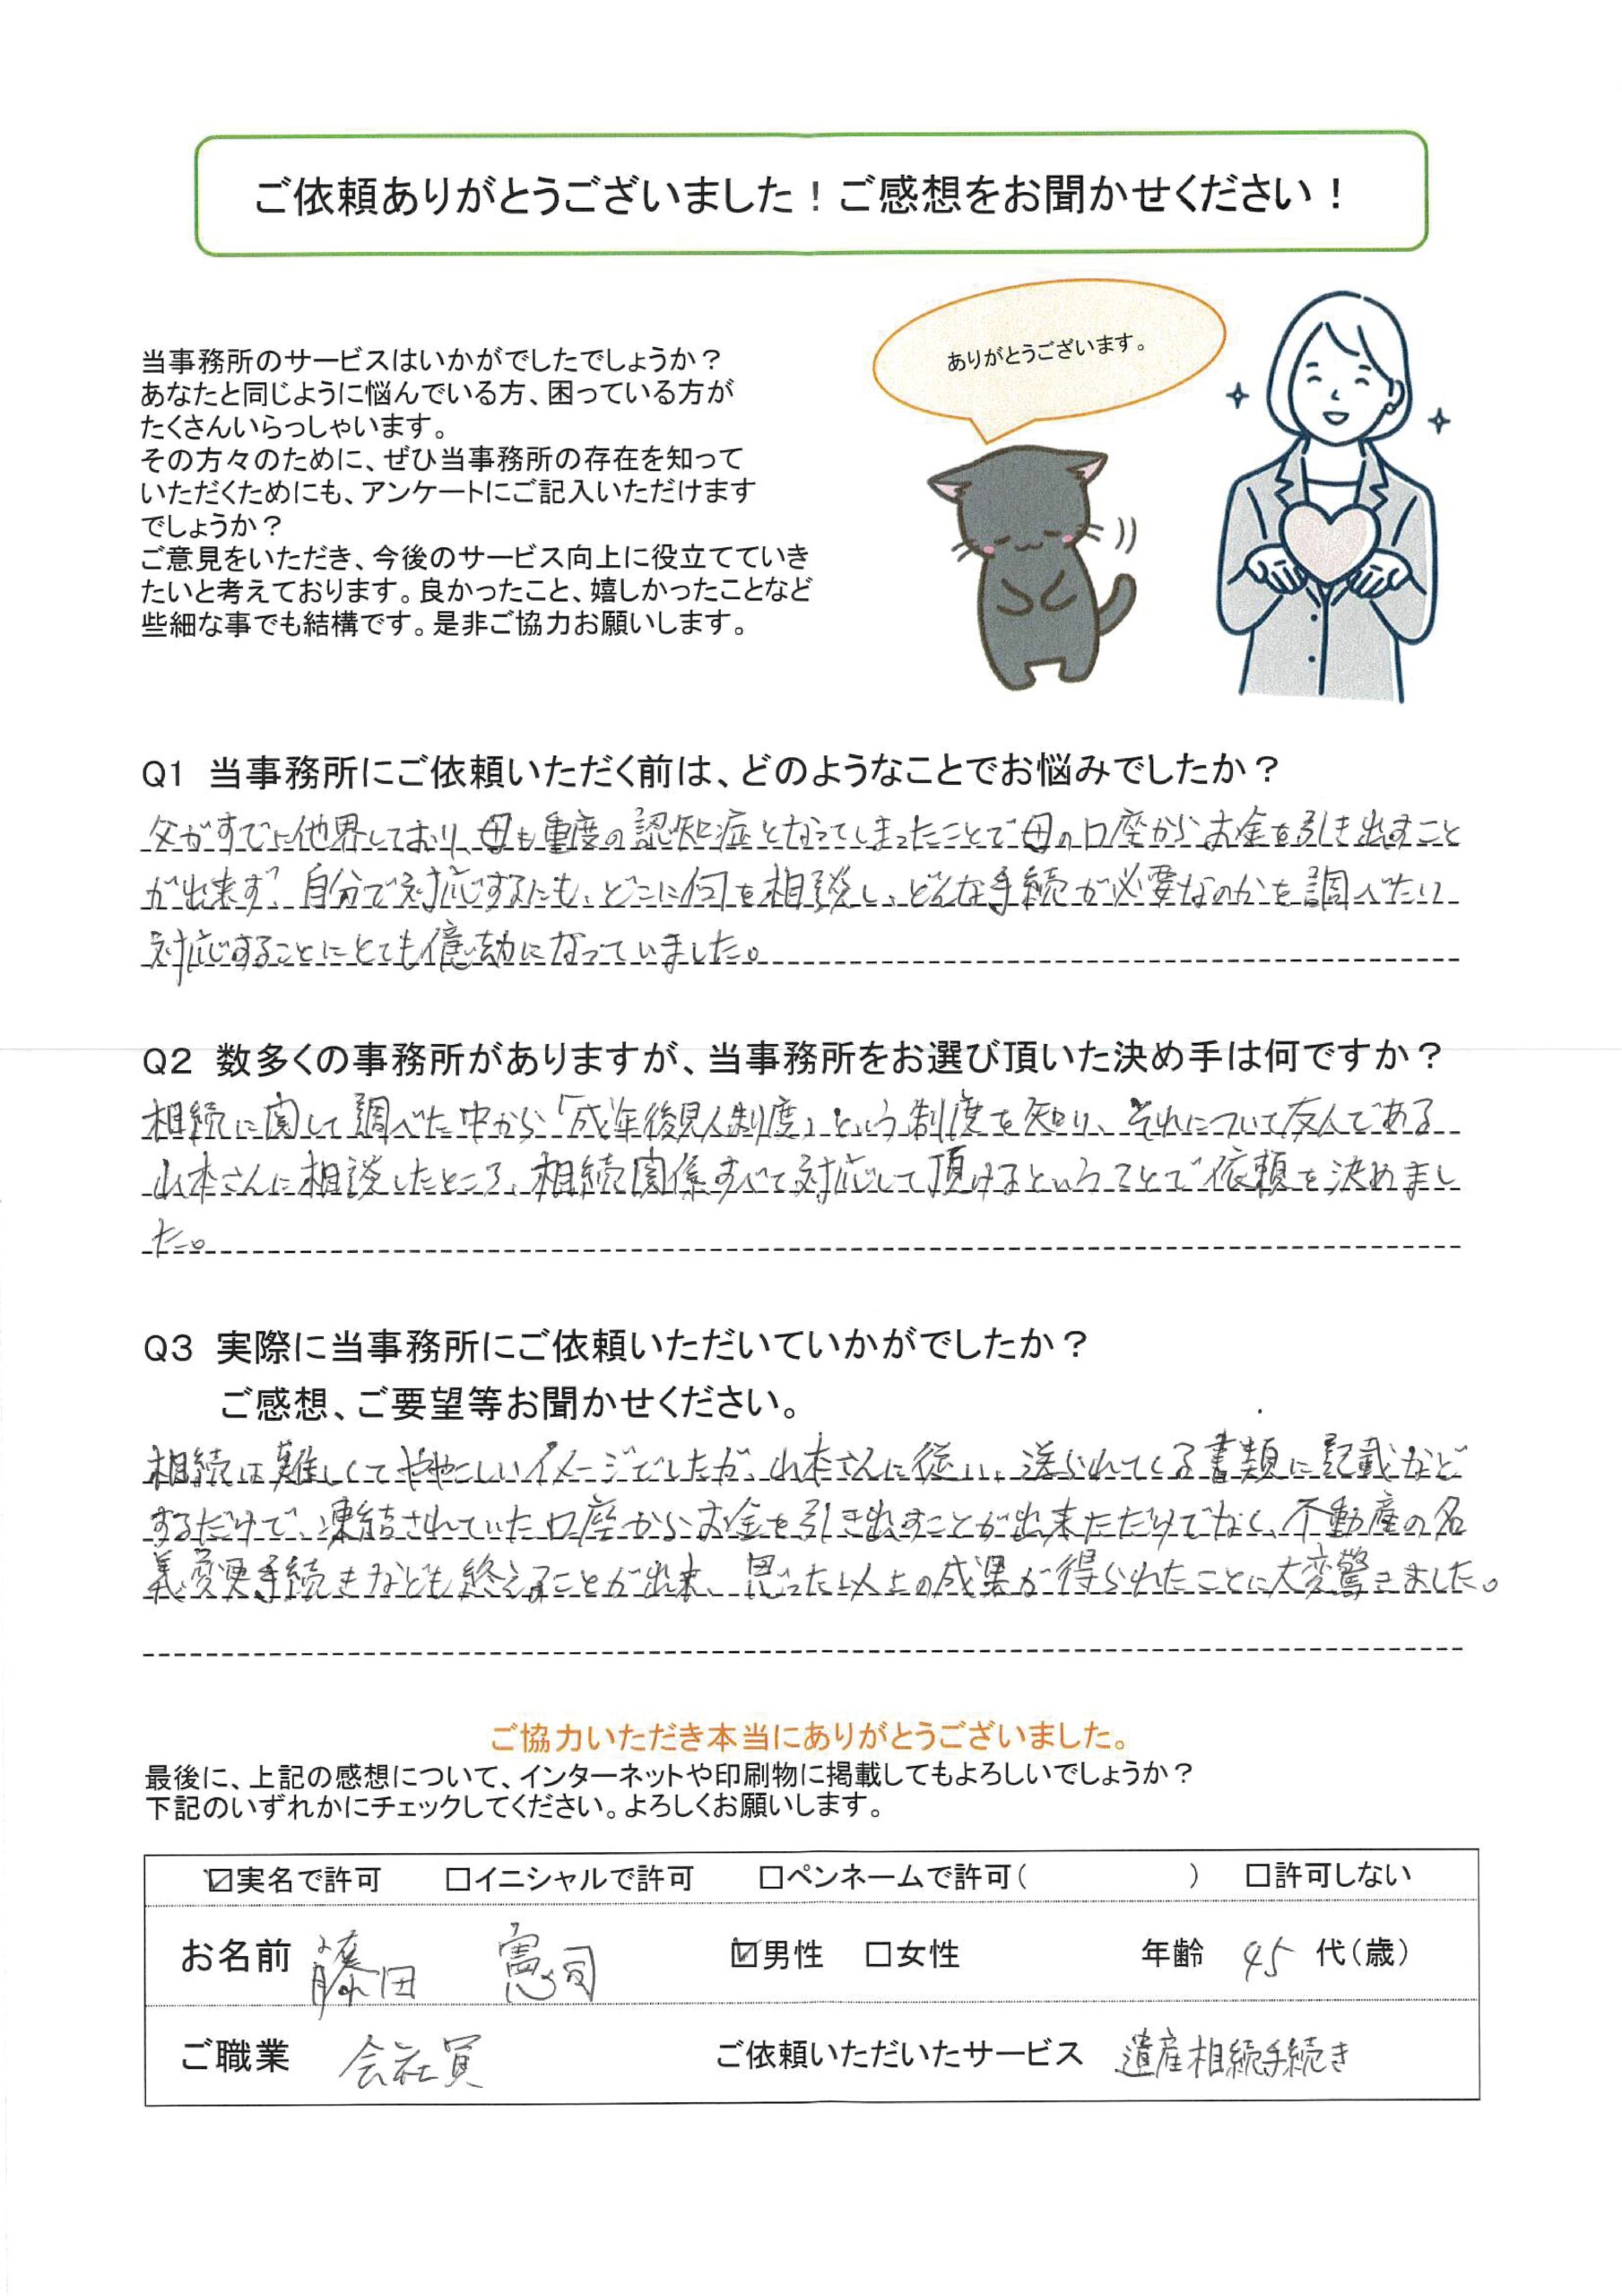 ご依頼ありがとうございました！ご感想をお聞かせください！
ありがとうございます。
当事務所のサービスはいかがでしたでしょうか？
あなたと同じように悩んでいる方、困っている方が
たくさんいらっしゃいます。
その方々のために、ぜひ当事務所の存在を知って
いただくためにも、アンケートにご記入いただけます
でしょうか？
ご意見をいただき、今後のサービス向上に役立てていき
たいと考えております。良かったこと、嬉しかったことなど
些細な事でも結構です。是非ご協力お願いします。
Q1 当事務所にご依頼いただく前は、どのようなことでお悩みでしたか？
父がすでに他界しており、母も重度の認知症となってしまったことで母の口座からお金を引き出すこと
が出来ず、自分で対応するにも、どこに何を相談し、どんな手続が必要なのかを調べたり
対応することにとても億劫になっていました。
Q2 数多くの事務所がありますが、当事務所をお選び頂いた決め手は何ですか？
相続に関して調べた中から「成年後見人制度」という制度を知り、それについて友人である
山本さんに相談したところ、相続関係すべて対応して頂けるということで依頼を決めまし
た。
Q3 実際に当事務所にご依頼いただいていかがでしたか？
ご感想、ご要望等お聞かせください。
相続は難しくてややこしいイメージでしたが、山本さんに従い、送られてくる書類に記載など
するだけで、凍結されていた口座からお金を引き出すことが出来ただけでなく、不動産の名
義変更手続きなども終えることが出来、思った以上の成果が得られたことに大変驚きました。
ご協力いただき本当にありがとうございました。
最後に、上記の感想について、インターネットや印刷物に掲載してもよろしいでしょうか？
下記のいずれかにチェックしてください。よろしくお願いします。
☑実名で許可 □イニシャルで許可 □ペンネームで許可( ) □許可しない
お名前 藤田 憲司 ☑男性 □女性 年齢 45 代（歳）
ご職業 会社員 ご依頼いただいたサービス 遺産相続手続き